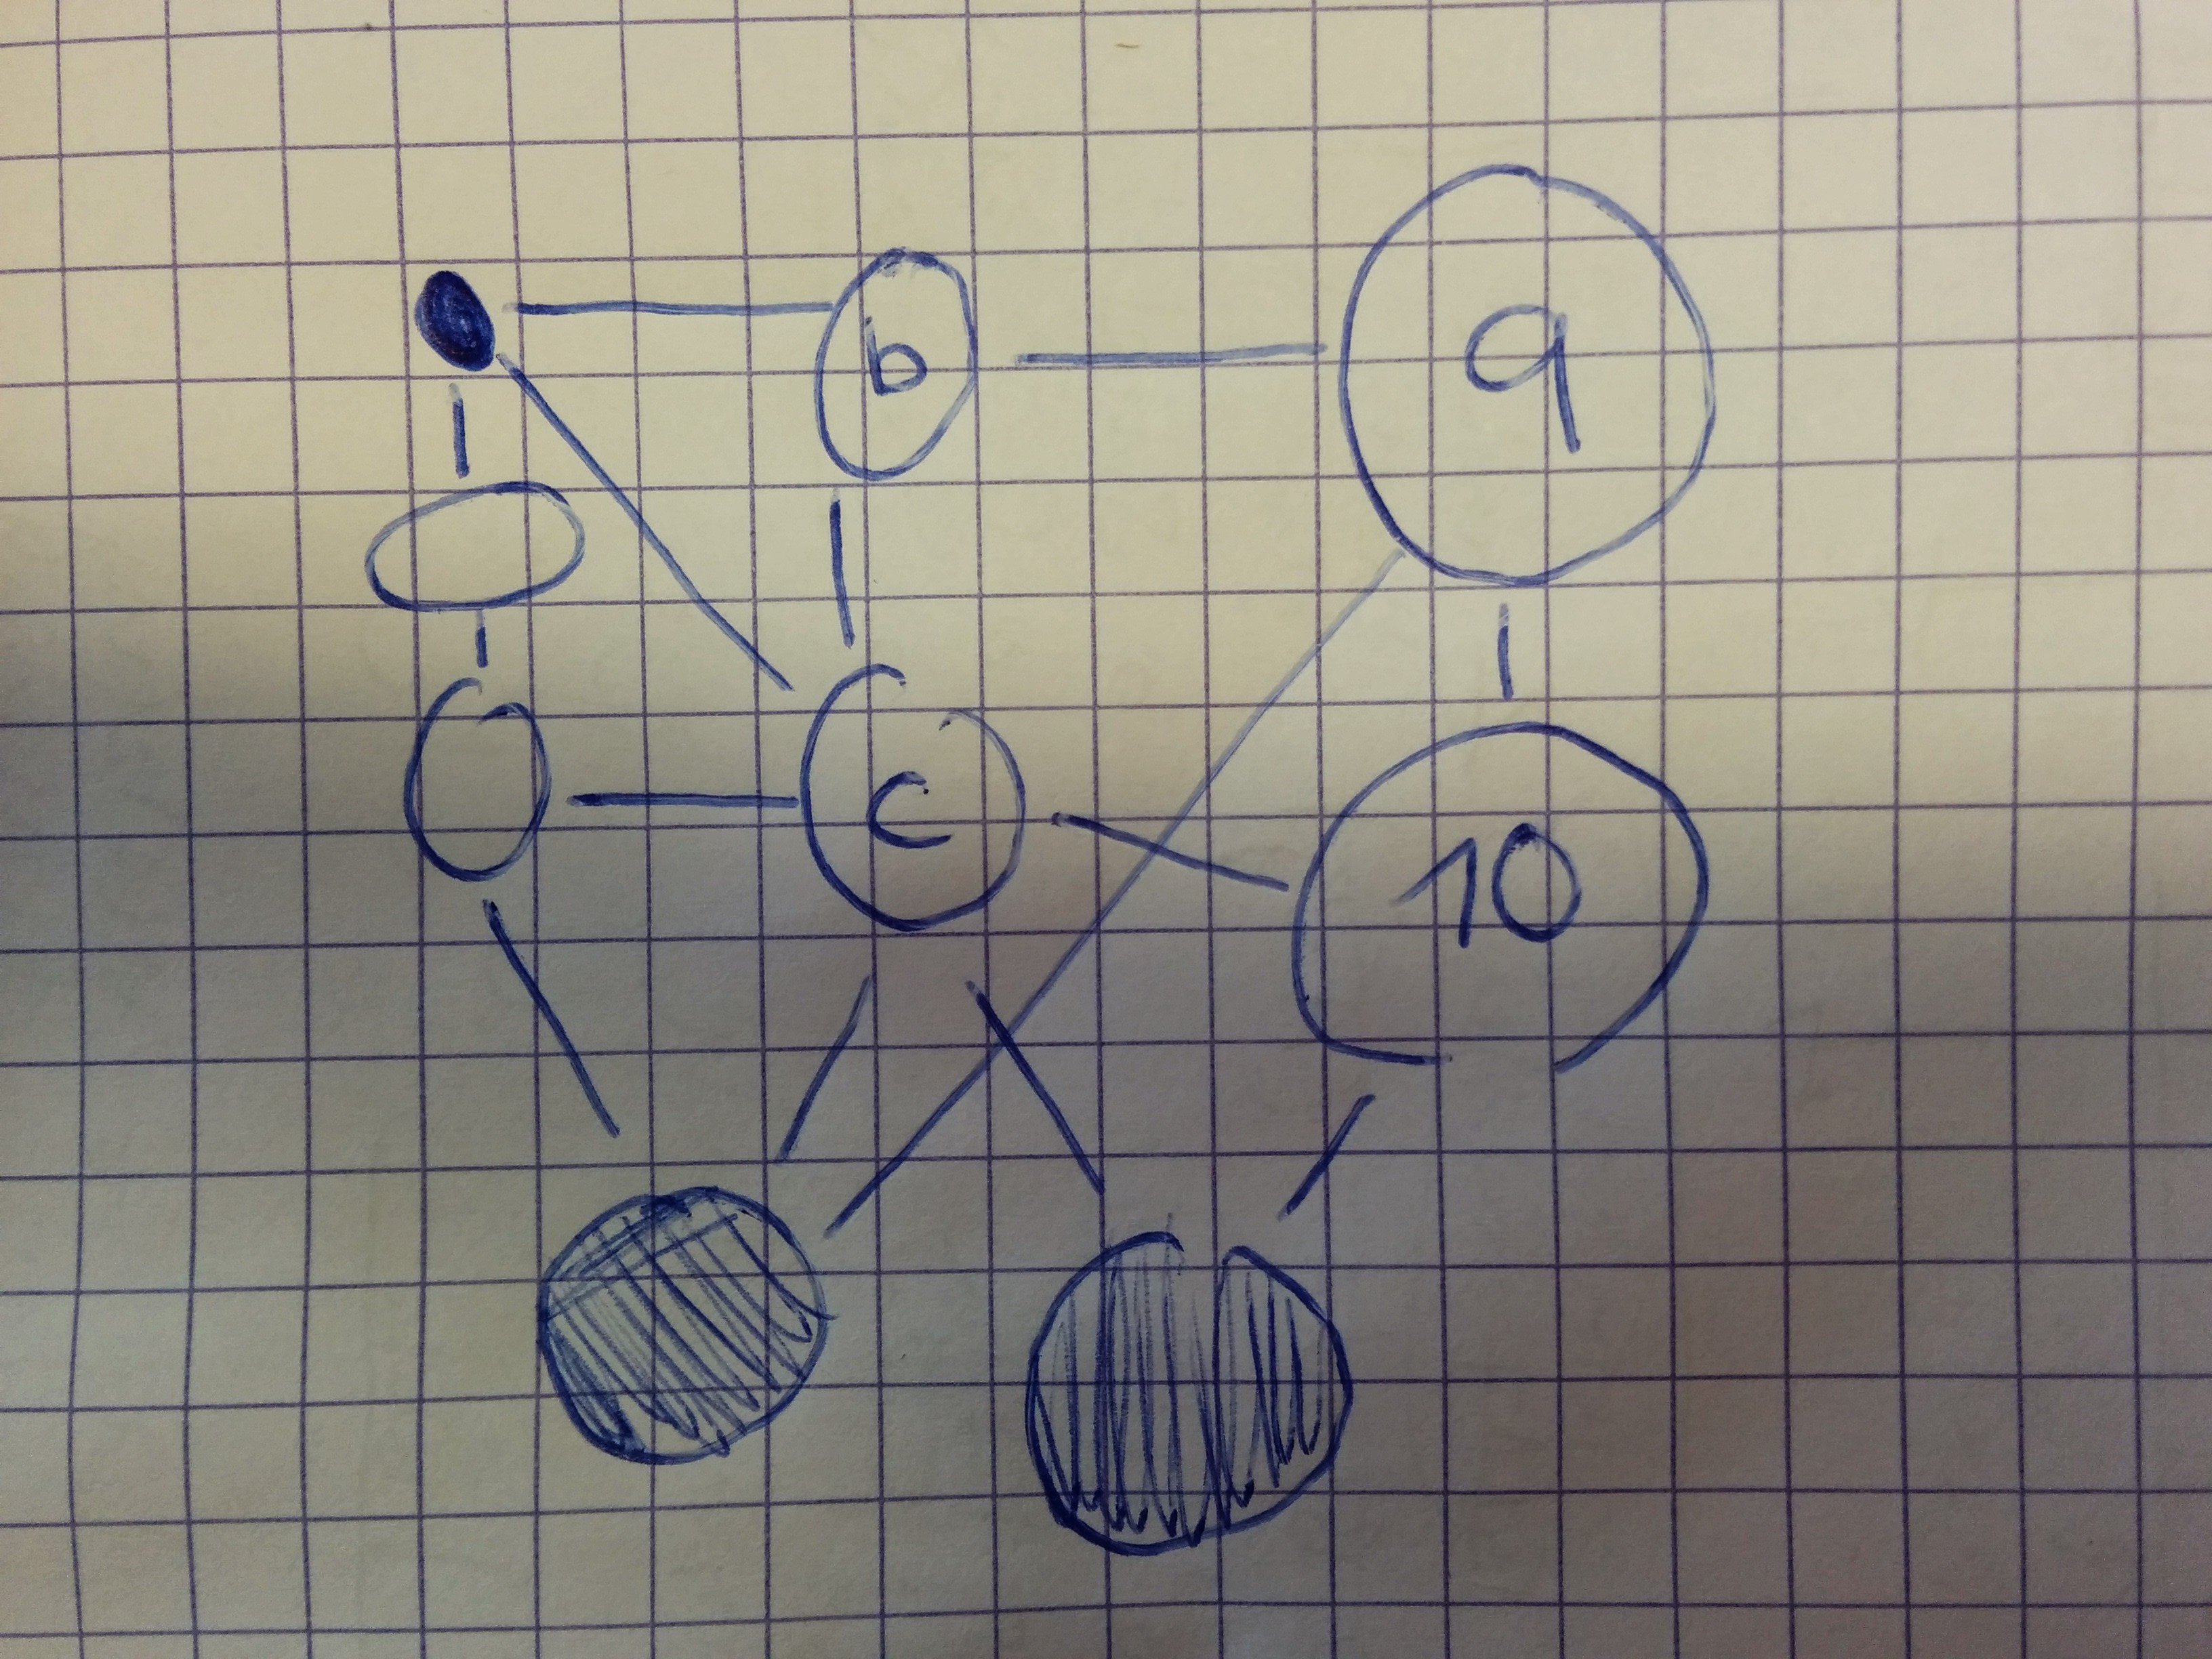 b
9
c
10